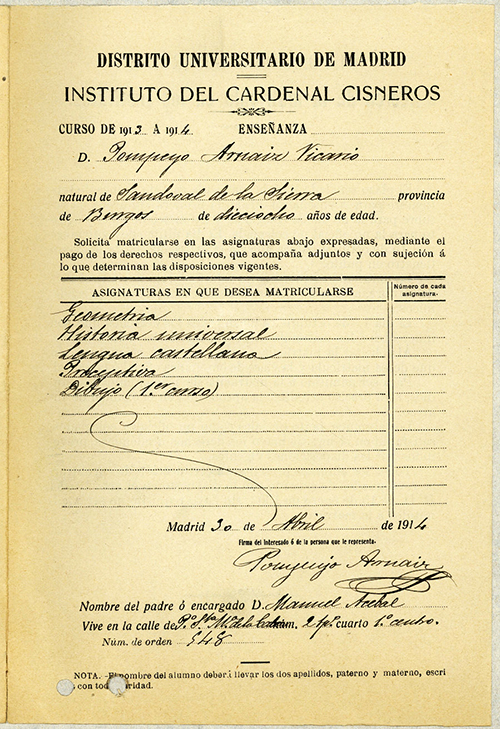 DISTRITO UNIVERSITARIO DE MADRID
INSTITUTO DEL CARDENAL CISNEROS
CURSO DE 1913 Á 1914 ENSEÑANZA
D. Pompeyo Arnaiz Vicario
natural de Sandoval de la Sierra provincia
de Burgos de dieciocho años de edad.
Solicita matricularse en las asignaturas abajo expresadas, mediante el
pago de los derechos respectivos, que acompaña adjuntos y con sujeción á
lo que determinan las disposiciones vigentes.
ASIGNATURAS EN QUE DESEA MATRICULARSE
Número de cada
asignatura.
Geometria
Historia universal
Lengua castellana
Preceptiva
Dibujo (1.er curso)
Madrid 30 de Abril de 1914
Firma del interesado ó de la persona que le representa.
Pompeyo Arnaiz
Nombre del padre ó encargado D. Manuel
Vive en la calle de núm. 2 cuarto 1º centro.
Núm. de orden 548
NOTA. -El nombre del alumno deberá llevar los dos apellidos, paterno y materno, escri
con claridad.